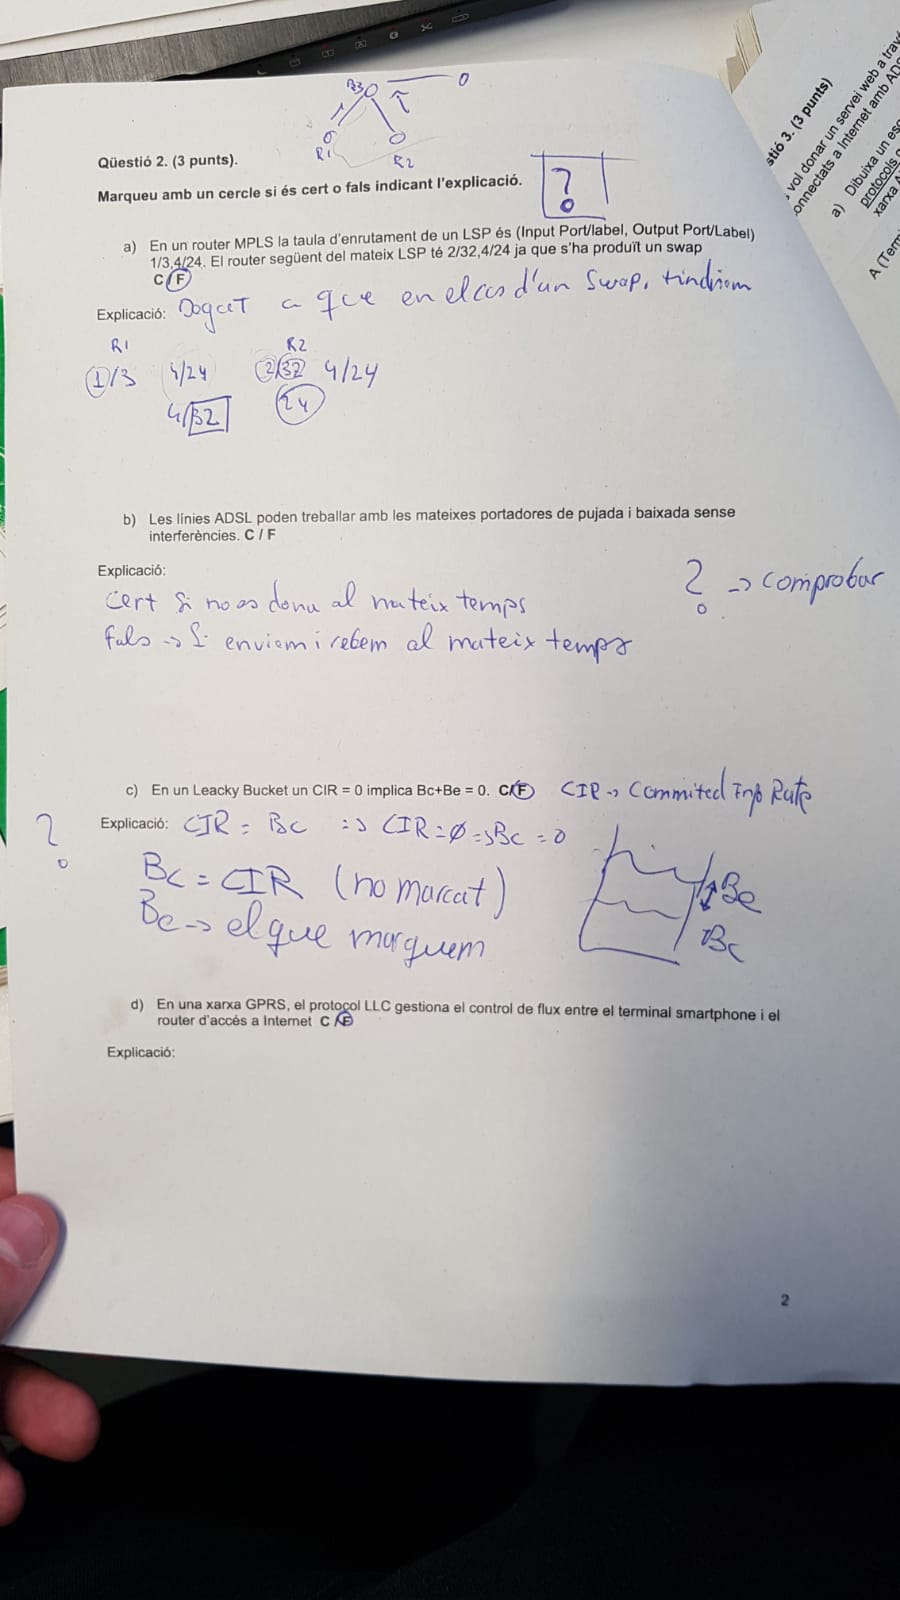 R3
0
R1
R2
Qüestió 2. (3 punts).
Marqueu amb un cercle si és cert o fals indicant l'explicació.
?
a) En un router MPLS la taula d'enrutament de un LSP és (Input Port/label, Output Port/Label)
1/3,4/24. El router següent del mateix LSP té 2/32,4/24 ja que s'ha produït un swap
C / F
Explicació: Dogut a que en el cas d'un Swap, tindriem
R1 R2
1/3 4/24 2/32 4/24
4/32 24
b) Les línies ADSL poden treballar amb les mateixes portadores de pujada i baixada sense
interferències. C / F
Explicació:
? -> comprobar
Cert si no es dona al mateix temps
Fals -> Si enviem i rebem al mateix temps
c) En un Leacky Bucket un CIR = 0 implica Bc+Be = 0. C/F CIR -> Commited Info Rate
?
Explicació: CIR = Bc => CIR = 0 => Bc = 0
Bc = CIR (no marcat)
Be -> el que marquem
Be
Bc
d) En una xarxa GPRS, el protocol LLC gestiona el control de flux entre el terminal smartphone i el
router d'accés a Internet C / F
Explicació:
2
stió 3. (3 punts)
vol donar un servei web a trav
onnectats a Internet amb AD
a) Dibuixa un esq
protocols
xarxa
A (Term